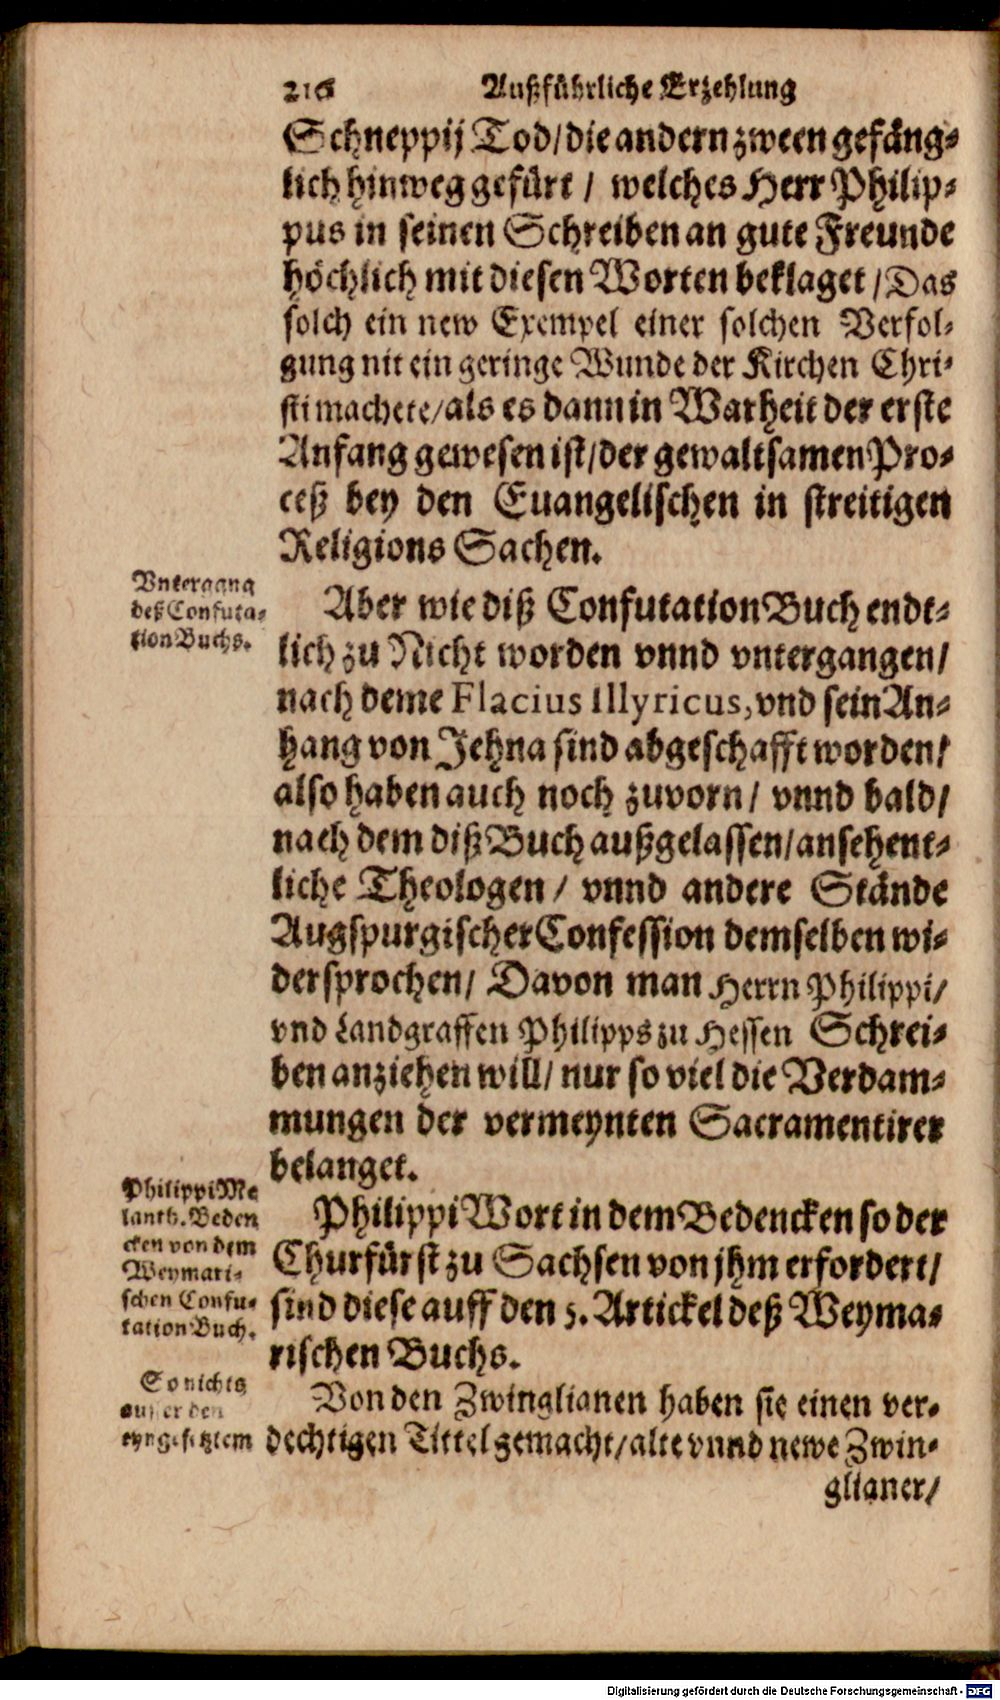 216 Außführliche Erzehlung
Schneppij Tod/die andern zween gefäng-
lich hinweg gefürt / welches Herr Philip-
pus in seinen Schreiben an gute Freunde
höchlich mit diesen Worten beklaget / Das
solch ein new Exempel einer solchen Verfol-
gung nit ein geringe Wunde der Kirchen Chri-
sti machete/als es dann in Warheit der erste
Anfang gewesen ist/der gewaltsamen Pro-
ceß bey den Euangelischen in streitigen
Religions Sachen.
Vntergang
deß Confuta-
tion Buchs.
Aber wie diß Confutation Buch endt-
lich zu Nicht worden vnnd vntergangen/
nach deme Flacius Illyricus, vnd sein An-
hang von Jehna sind abgeschafft worden/
also haben auch noch zuvorn / vnnd bald/
nach dem diß Buch außgelassen/ansehent-
liche Theologen / vnnd andere Stände
Augspurgischer Confession demselben wi-
dersprochen/ Davon man Herrn Philippi/
vnd Landgraffen Philipps zu Hessen Schrei-
ben anziehen will/ nur so viel die Verdam-
mungen der vermeynten Sacramentirer
belanget.
Philippi Me
lanth. Beden
cken von dem
Weymari-
schen Confu-
tation Buch.
Philippi Wort in dem Bedencken so der
Churfürst zu Sachsen von jhm erfordert/
sind diese auff den 5. Artickel deß Weyma-
rischen Buchs.
So nichts
ausser den
eyngesetztem
Von den Zwinglianen haben sie einen ver-
dechtigen Tittel gemacht/alte vnnd newe Zwin-
glianer/
Digitalisierung gefördert durch die Deutsche Forschungsgemeinschaft - DFG